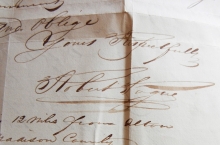 and Oblige
Yours Respectfully
Robert
12 Miles from Alton
Madison County